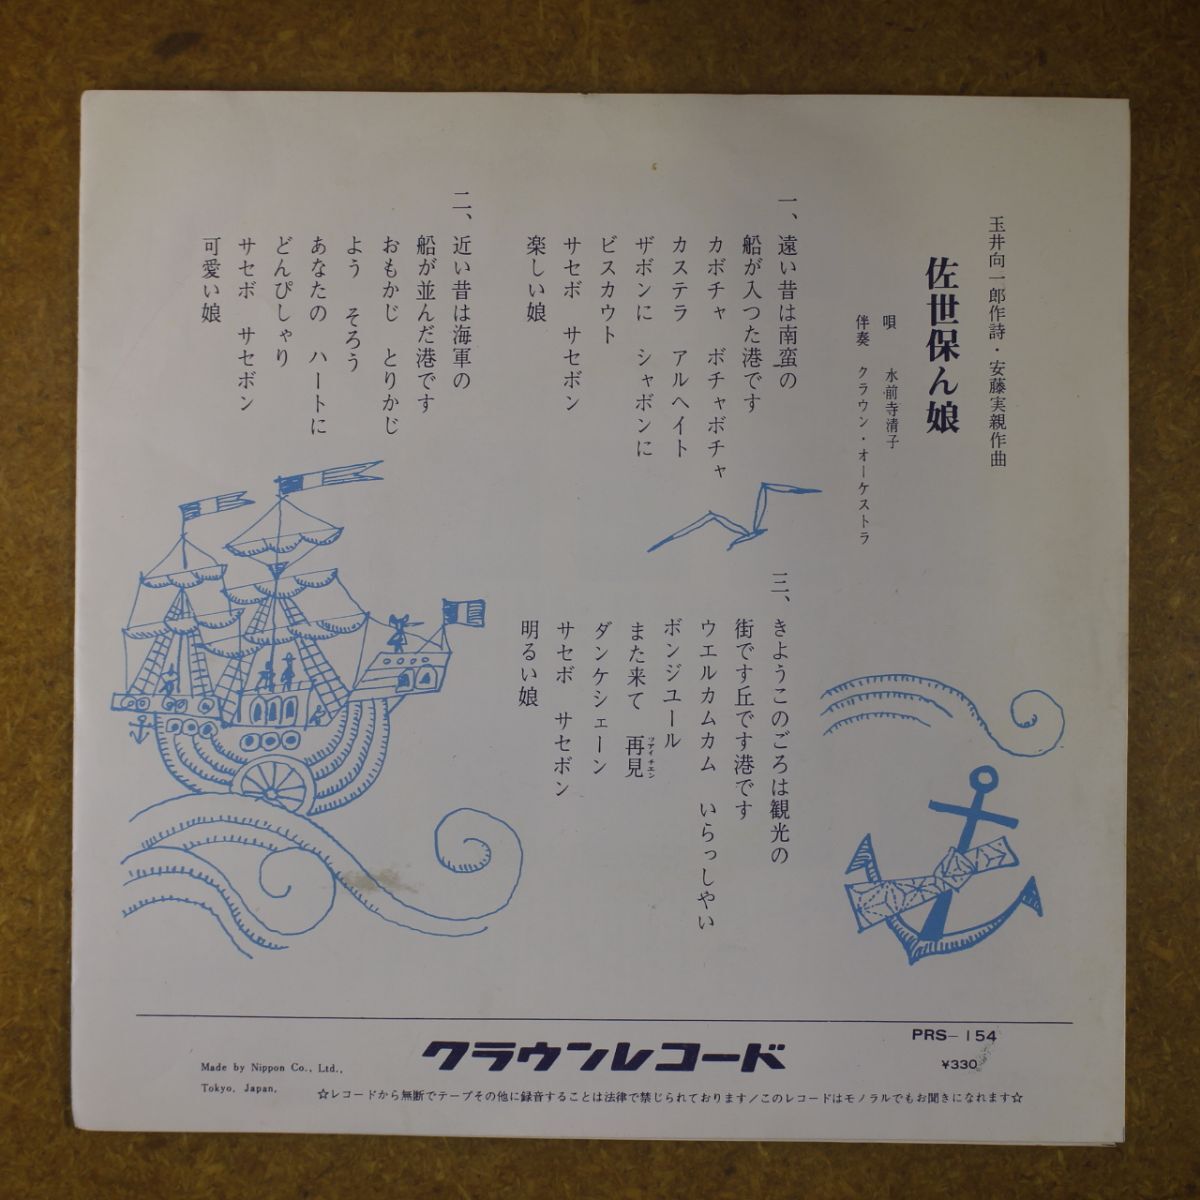 玉井向一郎作詩・安藤実親作曲
佐世保ん娘
唄　水前寺清子
伴奏　クラウン・オーケストラ
一、遠い昔は南蛮の
船が入つた港です
カボチャ　ボチャボチャ
カステラ　アルヘイト
ザボンに　シャボンに
ビスカウト
サセボ　サセボン
楽しい娘
二、近い昔は海軍の
船が並んだ港です
おもかじ　とりかじ
よう　そろう
あなたの　ハートに
どんぴしゃり
サセボ　サセボン
可愛い娘
三、きようこのごろは観光の
街です丘です港です
ウエルカムカム　いらっしやい
ボンジユール
また来て　再見
ツアイチエン
ダンケシェーン
サセボ　サセボン
明るい娘
PRS-154
¥330
クラウンレコード
Made by Nippon Co., Ltd.,
Tokyo, Japan,
☆レコードから無断でテープその他に録音することは法律で禁じられております/このレコードはモノラルでもお聞きになれます☆